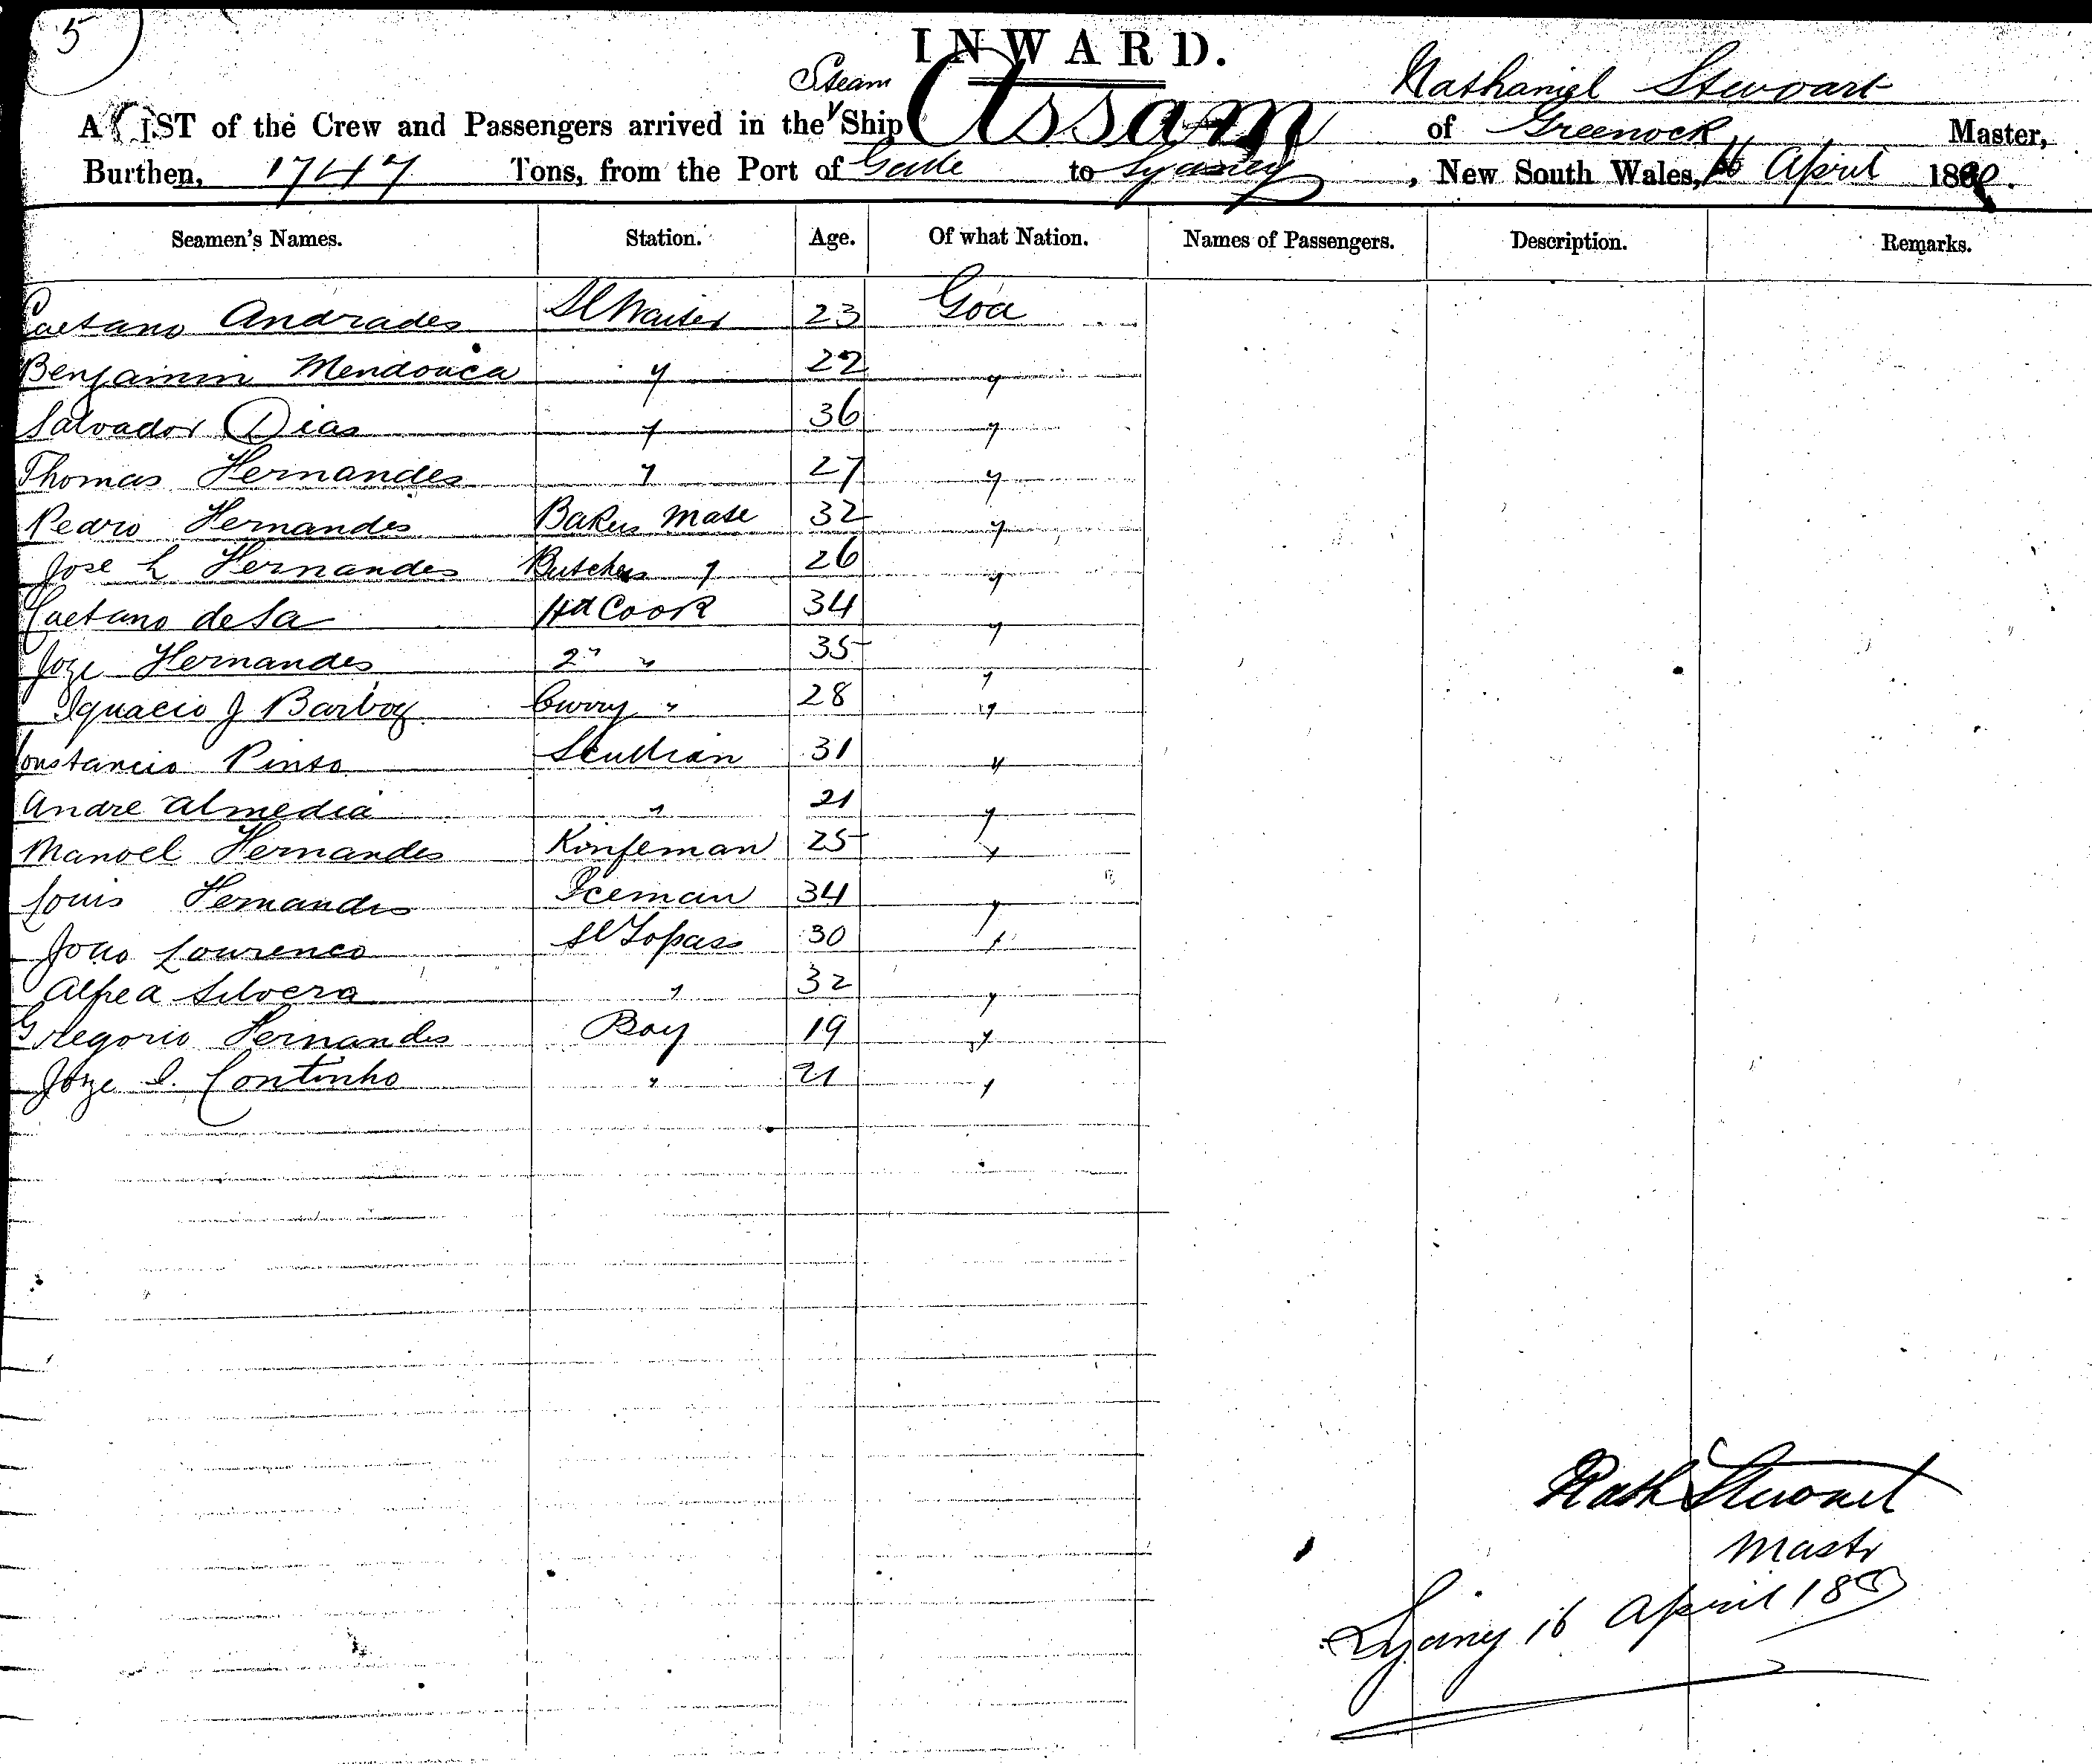 5
INWARD.
Steam
Nathaniel Stewart
A LIST of the Crew and Passengers arrived in the Ship Assam of Greenock Master,
Burthen, 1747 Tons, from the Port of Galle to Sydney, New South Wales, 16 April 1880.
Seamen's Names. Station. Age. Of what Nation. Names of Passengers. Description. Remarks.
Caetano Andrades Sl Waiter 23 Goa
Benjamin Mendonca " 22 "
Salvador Dias " 36 "
Thomas Hernandes " 27 "
Pedro Hernandes Bakers Mate 32 "
Jose L Hernandes Butchers " 26 "
Caetano de Sa Hd Cook 34 "
Joze Hernandes 2" " 35 "
Ignacio J Barboz Curry " 28 "
Constancio Pinto Scullian 31 "
Andre Almedia " 21 "
Manoel Hernandes Kinfeman 25 "
Louis Hernandes Iceman 34 "
Joao Lourenco Sl Topass 30 "
Silvera " 32 "
Gregorio Hernandes Boy 19 "
Joze I. Continho " 21 "
Nath Stewart
Mastr
Sydney 16 April 1880